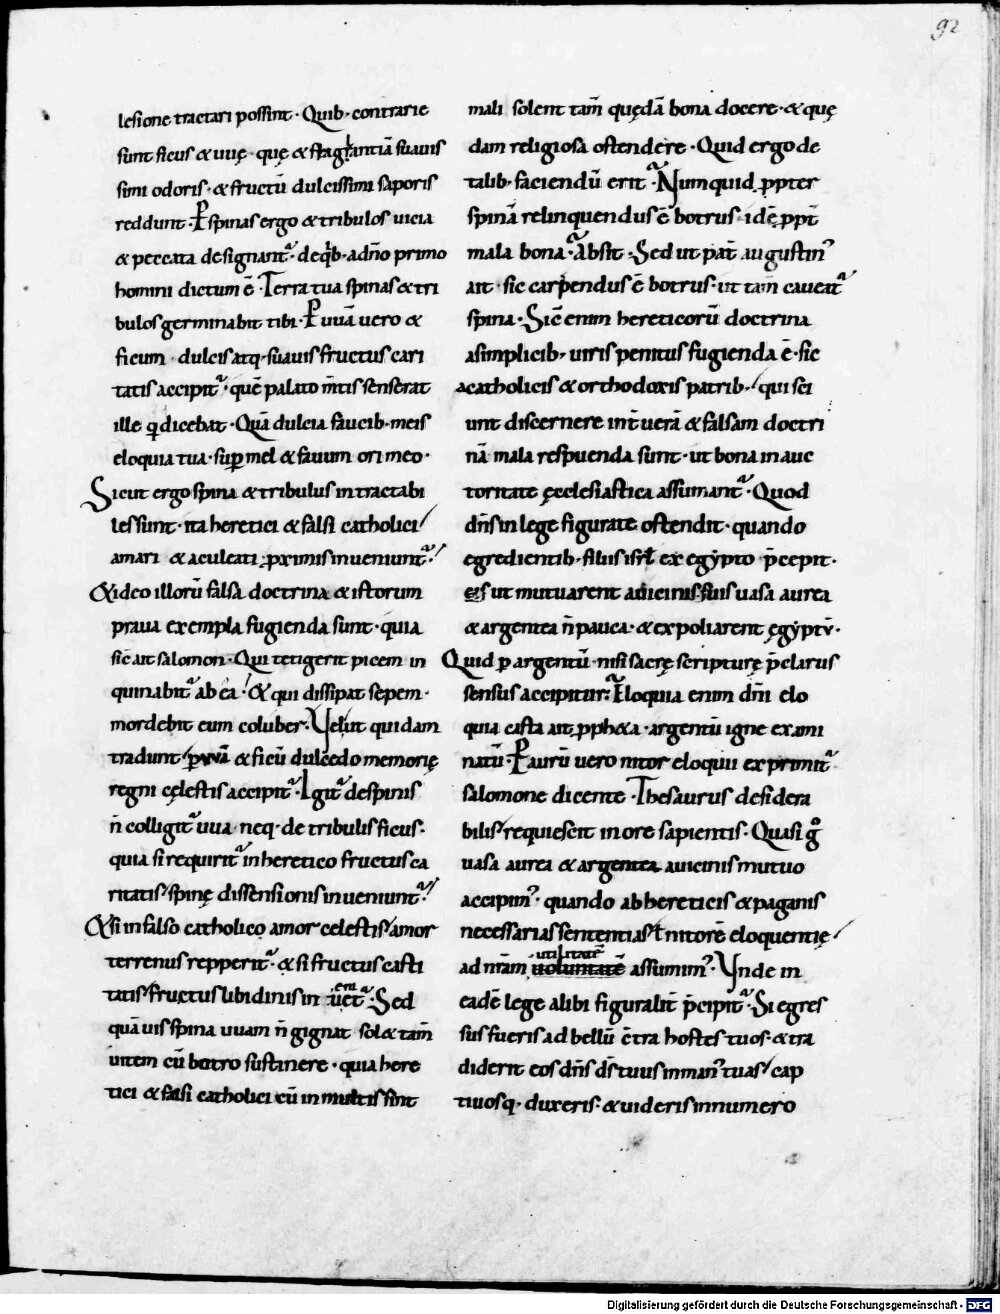 92
lesione tractari possint · Quib; contrarie
sunt ficus & uuę · quę & flagrantiā suauis
simi odoris · & fructū dulcissimi saporis
reddunt · P spinas ergo & tribulos uicia
& peccata designant᷑ · de qͥb; a dn̄o primo
homini dictum ē · Terra tua spinas & tri
bulos germinabit tibi · P uuā uero &
ficum · dulcis atq; suauis fructus cari
tatis accipit᷑ · quē palato m̄tis senserat
ille q̄ dicebat · Quā dulcia faucib; meis
eloquia tua · suꝑ mel & fauum ori meo ·
Sicut ergo spina & tribulus intractabi
les sunt · ita heretici & falsi catholici
amari & aculeati ꝓximis inueniunt᷑ ·
& ideo illorū falsa doctrina & istorum
praua exempla fugienda sunt · quia
sic̄ ait salomon · Qui tetigerit picem in
quinabit᷑ ab ea · & qui dissipat sepem ·
mordebit eum coluber · Velut quidam
tradunt ꝑ uuā & ficū dulcedo memorię
regni cęlestis accipit᷑ · Igit᷑ de spinis
n̄ colligit᷑ uua · neq; de tribulis ficus ·
quia si requirit᷑ in heretico fructus ca
ritatis spinę dissensionis inueniunt᷑ ·
& si in falso catholico amor celestis amor
terrenus repperit᷑ · & si fructus casti
tatis fructus libidinis inueniet᷑ · Sed
quāuis spina uuam n̄ gignat sol& tam̄
uitem cū botro sustinere · quia here
tici & falsi catholici cū in multis sint
mali solent tam̄ quędā bona docere · & quę
dam religiosa ostendere · Quid ergo de
talib; faciendū erit · Numquid ꝓpter
spinā relinquendus ē botrus · id ē ꝓpt̄
mala bona · Absit · Sed ut pat̄ augustin᷒
ait · sic carpendus ē botrus · ut tam̄ caueat᷑
spina · Sic̄ enim hereticorū doctrina
a simplicib; uiris penitus fugienda ē · sic
a catholicis & orthodoxis patrib; qui sci
unt discernere int̄ uerā & falsam doctri
nā mala respuenda sunt · ut bona in auc
toritate ęcclesiastica assumant᷑ · Quod
dn̄s in lege figurate ostendit · quando
egredientib; filiis isrl̄ ex egypto p̄cepit ·
eis ut mutuarent a uicinis suis uasa aurea
& argentea n̄ pauca · & expoliarent ęgyptū ·
Quid ꝑ argentū · nisi sacrę scripturę p̄clarus
sensus accipitur · Eloquia enim dn̄i elo
quia casta ait ꝓph&a · argentū igne exami
natū · P aurū uero nitor eloquii exprimit᷑
salomone dicente · Thesaurus desidera
bilis requiescit in ore sapientis · Quasi gͦ
uasa aurea & argentea a uicinis mutuo
accipim᷒ · quando ab hereticis & paganis
necessarias sententias ł nitorē eloquentię
utilitatē
ad nr̄am uoluntatē assumim᷒ · Vnde in
eadē lege alibi figuralit̄ p̄cipit᷑ · Si egres
sus fueris ad bellū c̄tra hostes tuos · & tra
diderit eos dn̄s ds̄ tuus in man᷒ tuas cap
tiuosq; duxeris · & uideris in numero
Digitalisierung gefördert durch die Deutsche Forschungsgemeinschaft - DFG